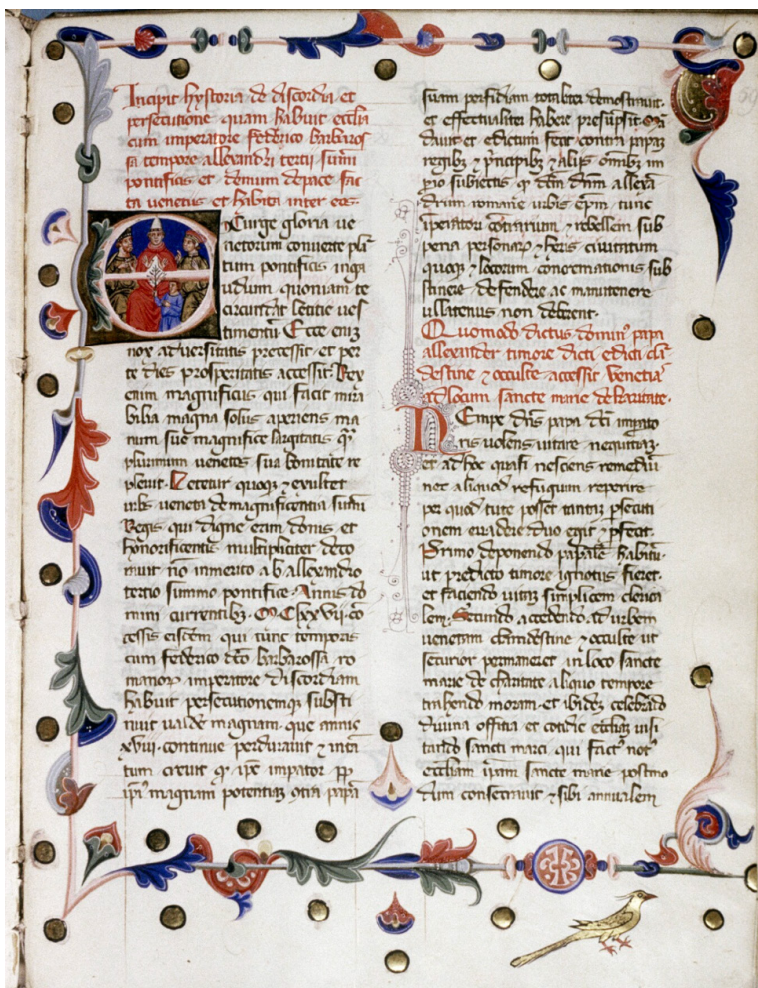 Incipit hystoria de discordia et
persecutione quam habuit ecclia
cum imperatore federico barbaros
sa tempore allexandri tertii sumi
pontificis et demum de pace fac
ta venetiis et habita inter eos.
Exurge gloria ve
netorum converte pla
tum pontificis in ga
udium quoniam te
circundat letitie ves
timentu Ecce enim
nox adversitatis precessit et per
te dies prosperitatis accessit Rex
enim magnificus qui facit mira
bilia magna solus aperiens ma
num sue magnifice largitatis
plurimum venetos sua bonitate re
plevit Letetur quoq et exultet
urbs veneta de magnificentia sumi
Regis qui digne eam donis et
honorificentiis multipliciter deco
ravit no inmerito ab allexandro
tertio summo pontifice Annis do
mini currentib MClxxvii co
cessis eisdem qui tunc temporis
cum federico dco barbarossa ro
manor imperatore discordiam
habuit persecutionemq susti
nuit valde magnam que annis
xviii continue perduravit et
tum crevit q ipe impator
magnam potentiam papa
suam perfidiam totaliter demostravit
et effectualiter habere presupsit
davit et edictum fecit contra papam
regibz et principibz et aliis omibz im
pio subiectis q dnm allexa
drum romane urbis epm tunc
iperatori contrarium et rebellem sub
pena personar et heris civitatum
quoq et locorum concremationis sub
stinere defendere ac manutenere
ullatenus non deberent
Quomodo dictus domin papa
allexander timore dicti edicti cla
destine et occulte accessit venetia
ad locum sancte marie de karitate
Nempe dns papa dci imperato
ris volens vitare nequitiaz
et ad hoc quasi nesciens remediu
nec aliquod refugium reperire
per quod tute posset tantaz psecuti
onem evadere duo egit et pfecit
Primo deponendo papale habitu
ut predicto timore ignotus fieret
et faciendo vitam simplicem clerica
lem Secundo accedendo ad urbem
venetam clandestine et occulte ut
securior permaneret in loco sancte
marie de charitate aliquo tempore
trahendo moram et ibidez celebrado
divina offitia et cotidie ecclesia visi
tando sancti marci qui fact not
ecclesiam ipam sancte marie postmo
dum consecravit et sibi annualem